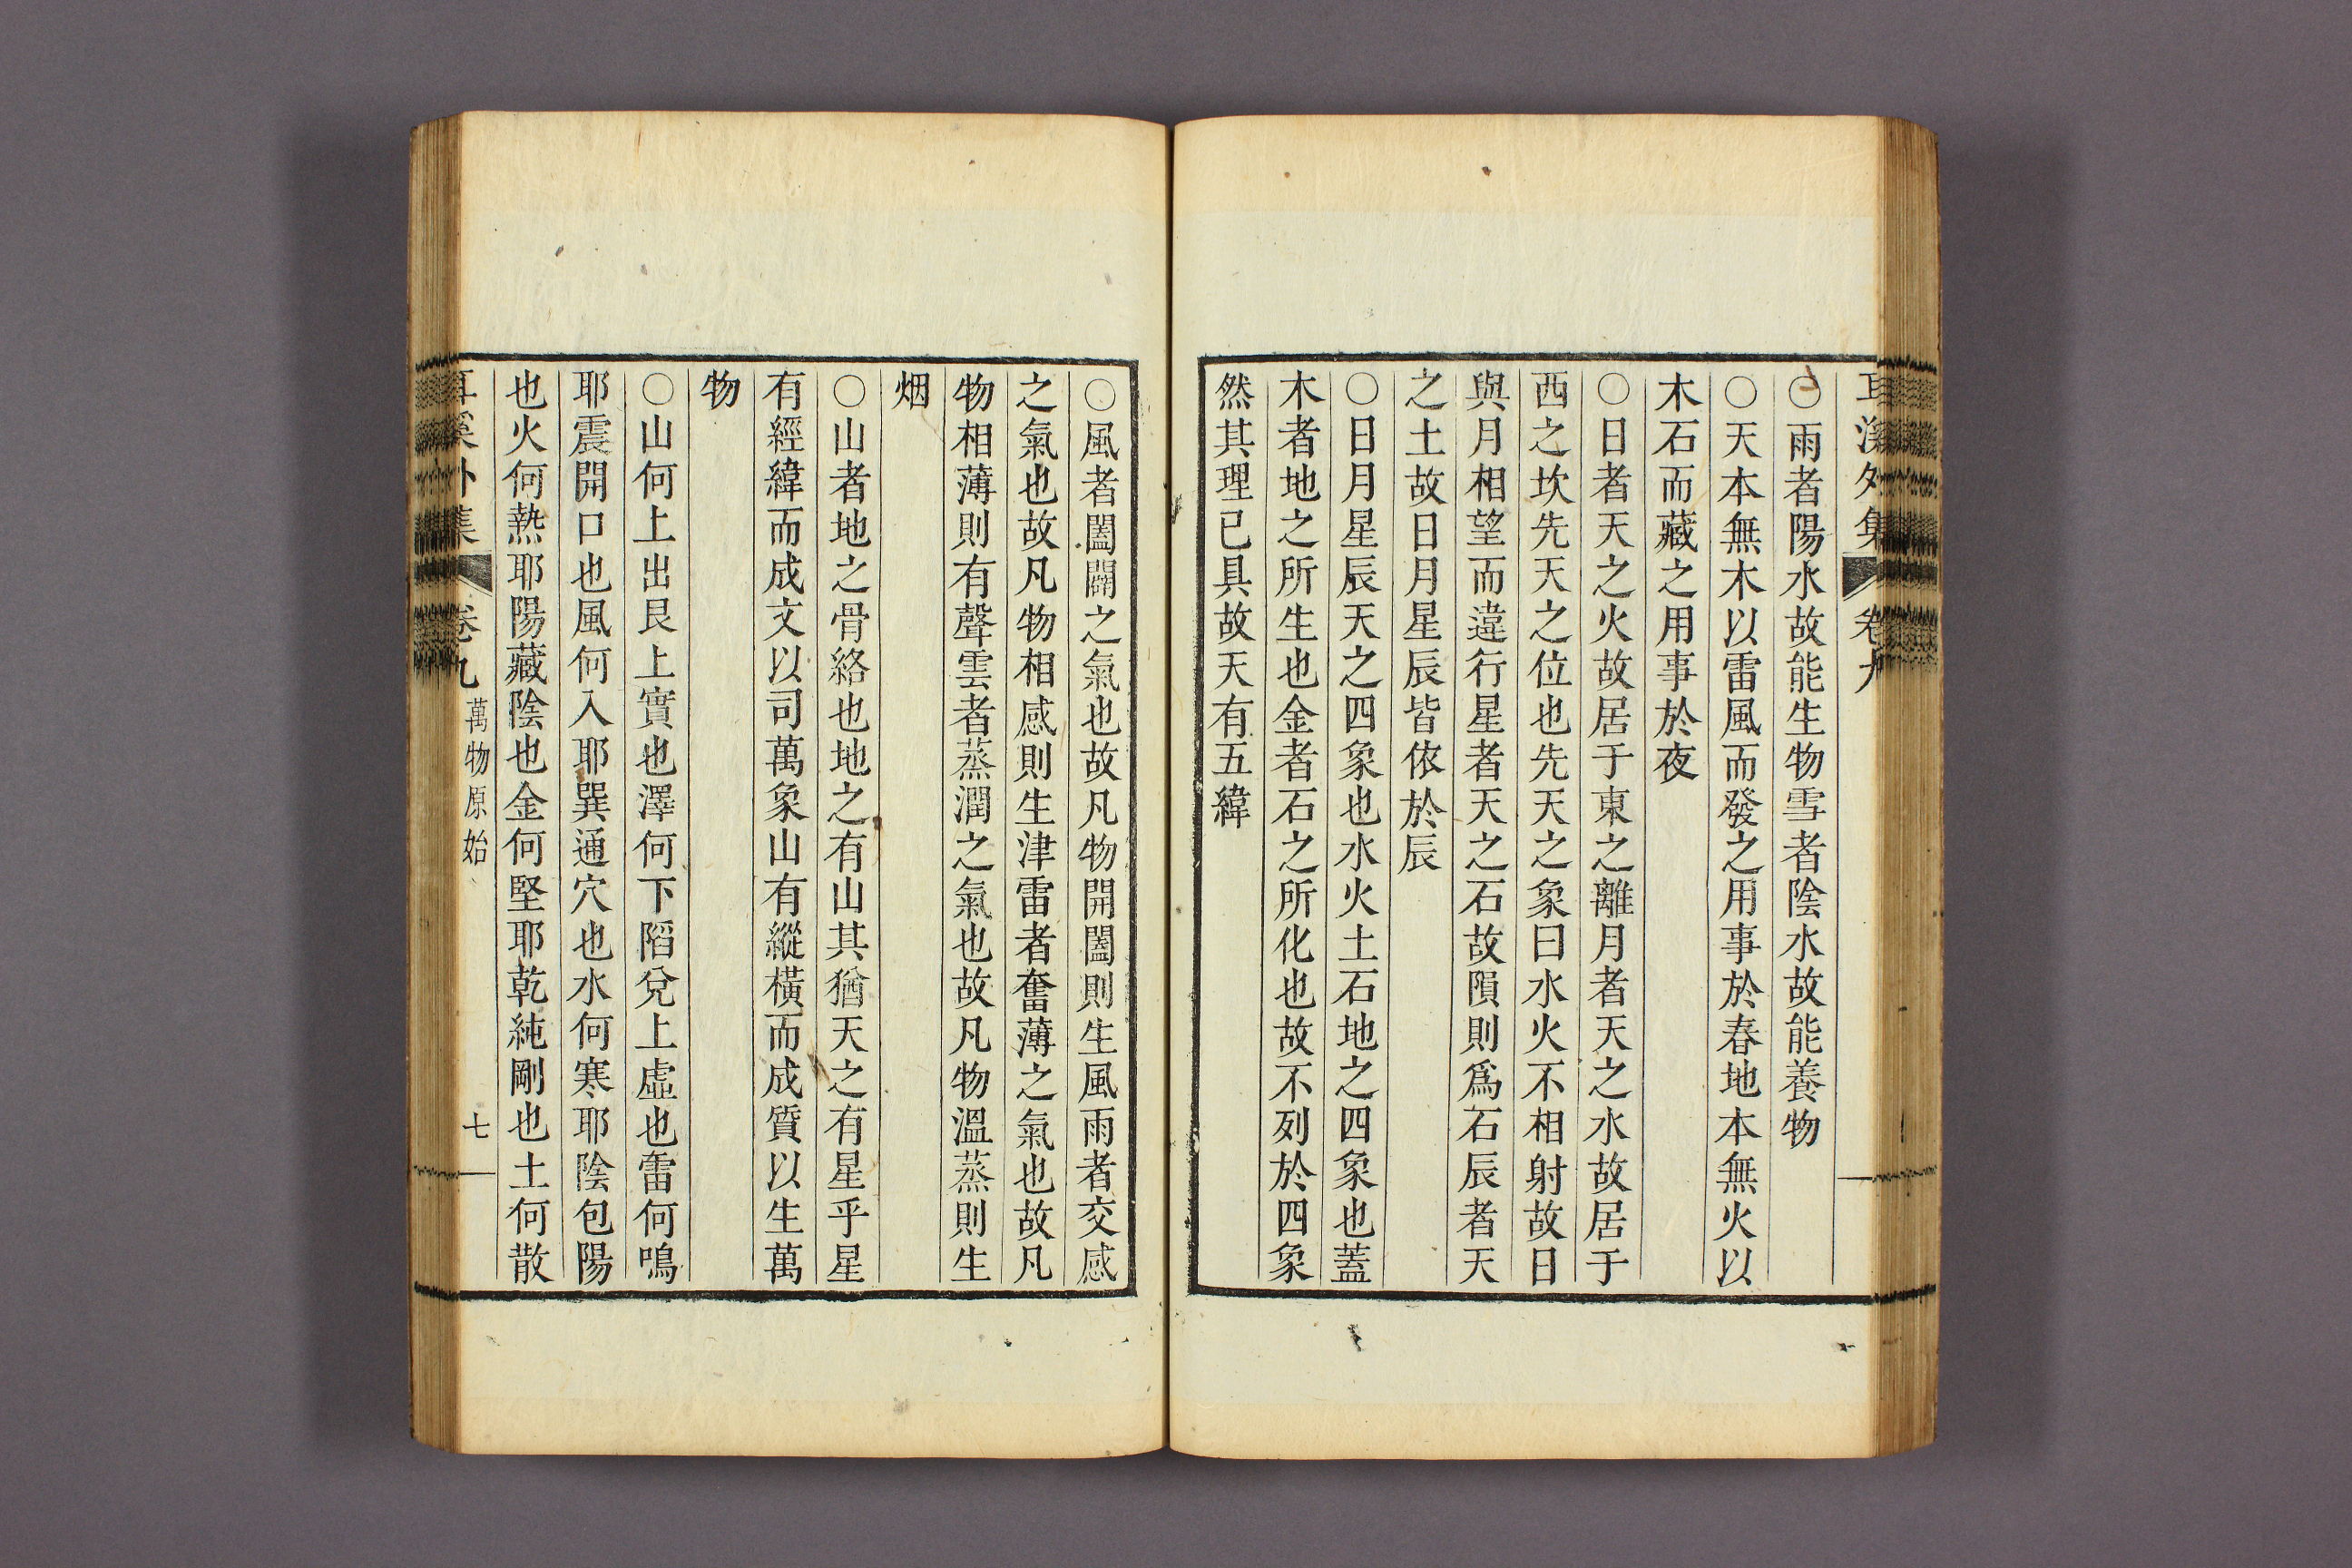 耳溪外集 卷九
○雨者陽水故能生物雪者陰水故能養物
○天本無木以雷風而發之用事於春地本無火以
木石而藏之用事於夜
○日者天之火故居于東之離月者天之水故居于
西之坎先天之位也先天之象曰水火不相射故日
與月相望而違行星者天之石故隕則爲石辰者天
之土故日月星辰皆依於辰
○日月星辰天之四象也水火土石地之四象也蓋
木者地之所生也金者石之所化也故不列於四象
然其理已具故天有五緯
○風者闔闢之氣也故凡物開闔則生風雨者交感
之氣也故凡物相感則生津雷者奮薄之氣也故凡
物相薄則有聲雲者蒸潤之氣也故凡物溫蒸則生
烟
○山者地之骨絡也地之有山其猶天之有星乎星
有經緯而成文以司萬象山有縱橫而成質以生萬
物
○山何上出艮上實也澤何下陷兌上虛也雷何鳴
耶震開口也風何入耶巽通穴也水何寒耶陰包陽
也火何熱耶陽藏陰也金何堅耶乾純剛也土何散
耳溪外集 卷九 萬物原始 七